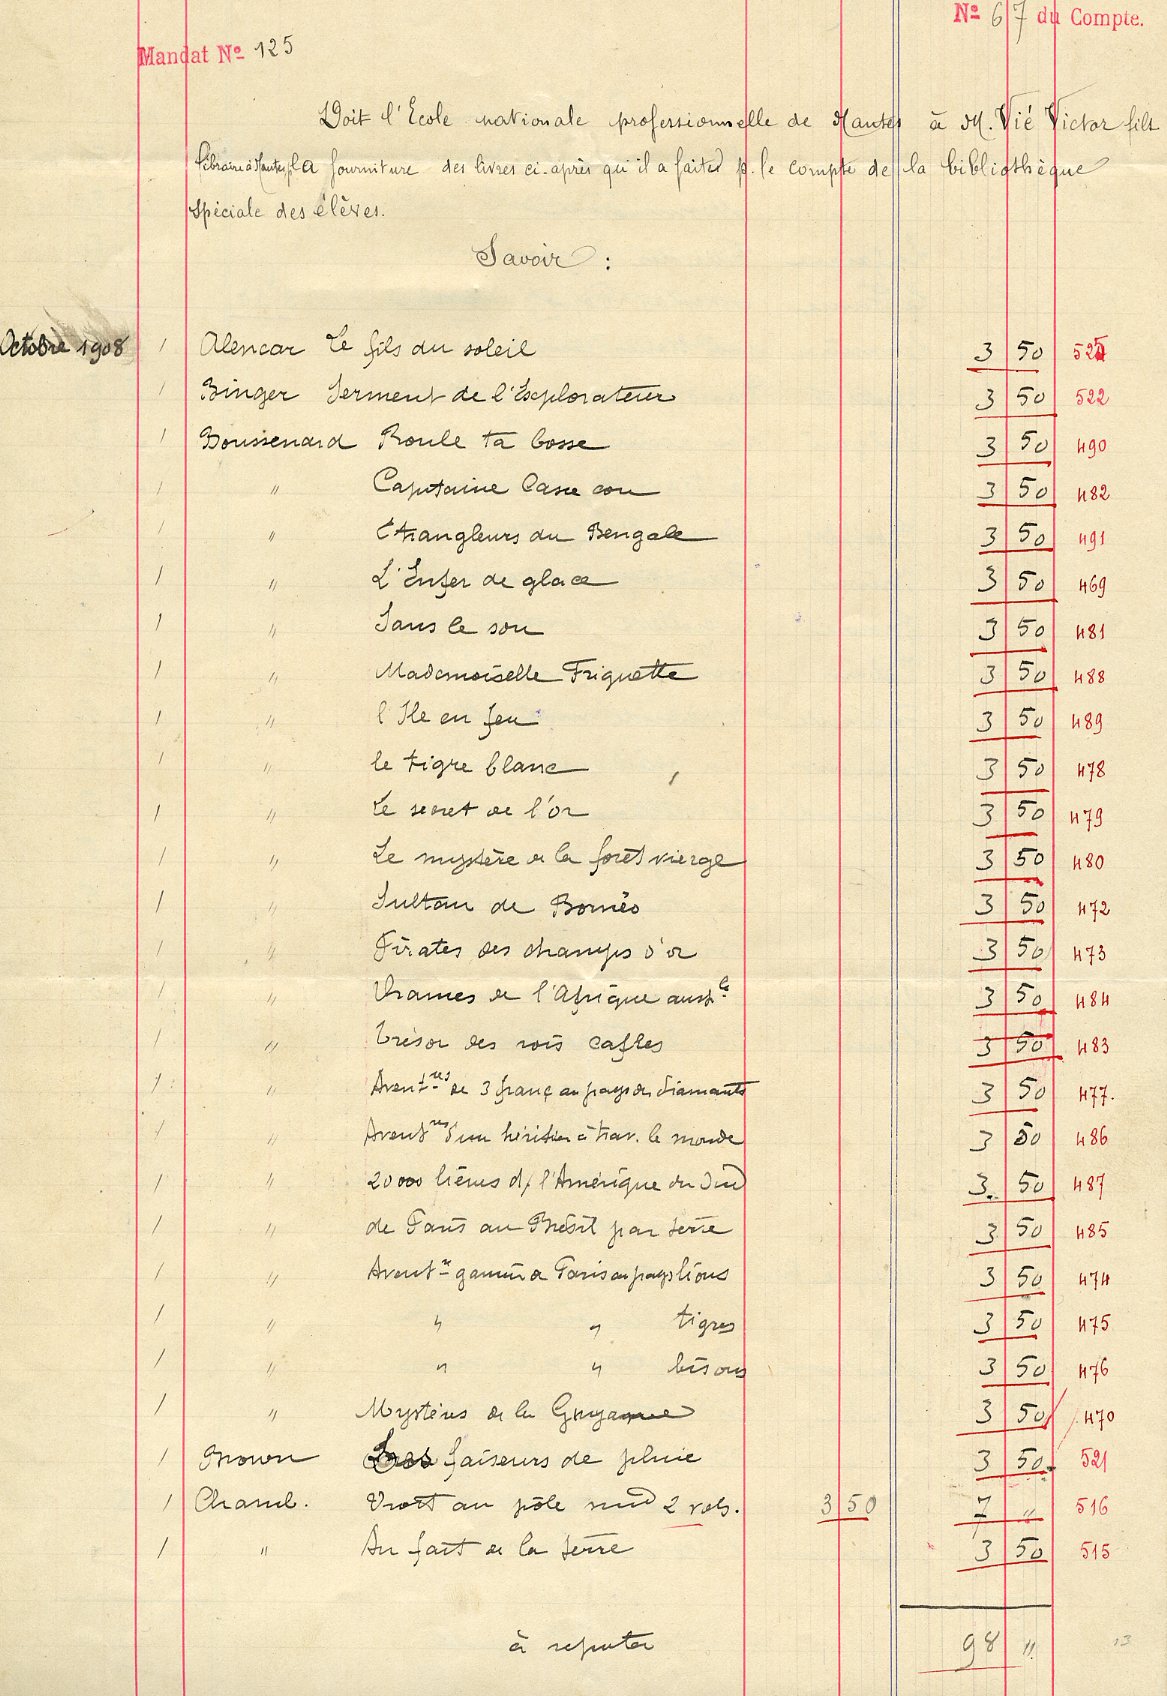 Nº 67 du Compte.
Mandat Nº 125
Doit l'Ecole nationale professionnelle de Nantes à M. Vié Victor fils
libraire à Nantes, la fourniture des livres ci-après qu'il a faites p. le compte de la bibliothèque
Spéciale des élèves.
Savoir :
Octobre 1908 1 Alencar Le fils du soleil 3 50 525
1 Binger Serment de l'Explorateur 3 50 522
1 Boussenard Roule ta bosse 3 50 490
1 " Capitaine Casse cou 3 50 482
1 " Etrangleurs du Bengale 3 50 491
1 " L'Enfer de glace 3 50 469
1 " Sans le sou 3 50 481
1 " Mademoiselle Friquette 3 50 488
1 " l'Ile en feu 3 50 489
1 " le tigre blanc 3 50 478
1 " Le secret de l'or 3 50 479
1 " Le mystère de la forêt vierge 3 50 480
1 " Sultan de Bornéo 3 50 472
1 " Pirates des champs d'or 3 50 473
1 " Drames de l'Afrique austle 3 50 484
1 " Trésor des rois cafres 3 50 483
1 " Aventres de 3 franç au pays des diamants 3 50 477.
1 " Aventres d'un héritier à trav. le monde 3 50 486
1 " 20000 lieues d/ l'Amérique du Sud 3 50 487
1 " de Paris au Brésil par terre 3 50 485
1 " Aventre gamin de Paris au pays lions 3 50 474
1 " " " tigres 3 50 475
1 " " " bisons 3 50 476
1 " Mystères de la Guyane 3 50 470
1 Brown Les faiseurs de pluie 3 50 521
1 Chamb. Droit au pôle sud 2 vols. 3 50 7 " 516
1 " Au fait de la terre 3 50 515
à reporter 98 "
13